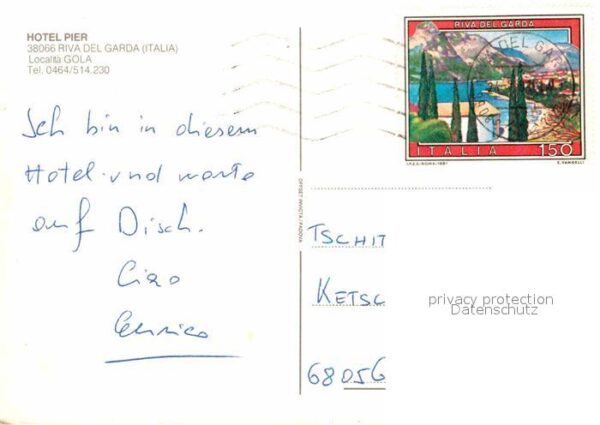 HOTEL PIER
38066 RIVA DEL GARDA (ITALIA)
Località GOLA
Tel. 0464/514.230
Ich bin in diesem
Hotel und warte
auf Disch.
Ciao
Enrico
OFFSET INVICTA / PADOVA
RIVA DEL GARDA
DEL GA
ITALIA 150
I.P.Z.S.-ROMA-1981
E. VANGELLI
TSCHIT
KETSC
68056
privacy protection
Datenschutz